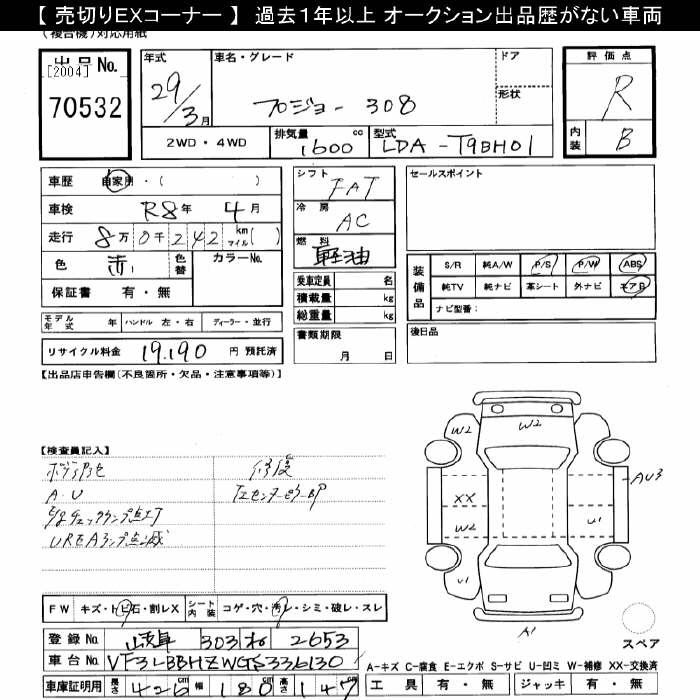 【 売切りEXコーナー 】 過去１年以上 オークション出品歴がない車両
(複合機)対応用紙
出品No.
[2004]
70532
年式
29/3月
車名・グレード
プジョー 308
ドア
形状
評価点
R
内装
B
2WD・4WD
排気量
1600 cc
型式
LDA-T9BH01
車歴 自家用・( )
車検 R8年 4月
走行 8万0千242 km マイル( )
色 赤
色替
カラーNo.
保証書 有・無
シフト FAT
冷房 AC
燃料 軽油
乗車定員 名
積載量 kg
総重量 kg
書類期限
月 日
セールスポイント
装備品
S/R 純A/W P/S P/W ABS
純TV 純ナビ 革シート 外ナビ エアB
ナビ型番：
後日品
モデル年式 年 ハンドル 左・右 ディーラー・並行
リサイクル料金 19,190 円 預託済
【出品店申告欄(不良箇所・欠品・注意事項等)】
【検査員記入】
A・U
UREAランプ点滅
修復
W2
W2
XX
W2
U1
AU3
U1
A1
スペア
FW キズ・トビ石・割レX シート内装 コゲ・穴・汚レ・シミ・破レ・スレ
登録No. 岐阜 303 2653
車台No. VF3LBBHZWGS336130
車庫証明用 長さ 426cm 幅 180cm 高さ 147
A-キズ C-腐食 E-エクボ S-サビ U-凹ミ W-補修 XX-交換済
工具 有・無 ジャッキ 有・無